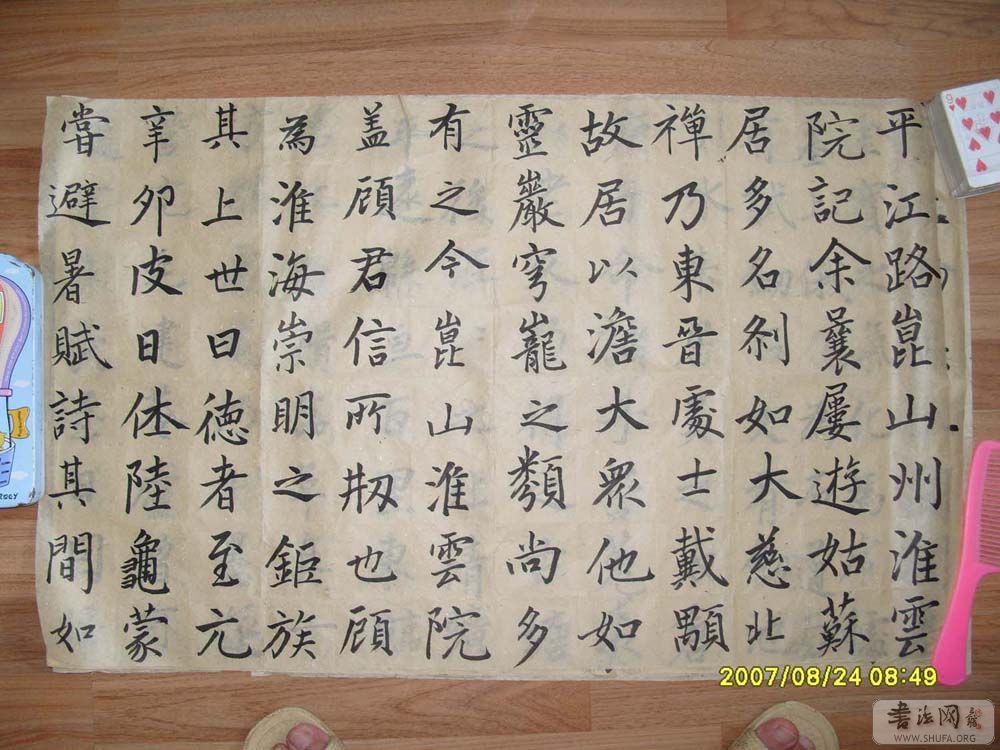 平江路崑山州淮雲
院記余曩屢遊姑蘇
居多名刹如大慈北
禪乃東晉處士戴顒
故居以澹大眾他如
靈巖穹巃之類尚多
有之今崑山淮雲院
盖顧君信所剏也顧
為淮海崇明之鉅族
其上世曰德者至元
辛卯皮日休陸龜蒙
嘗避暑賦詩其間如
2007/08/24 08:49
书法网
WWW.SHUFA.ORG